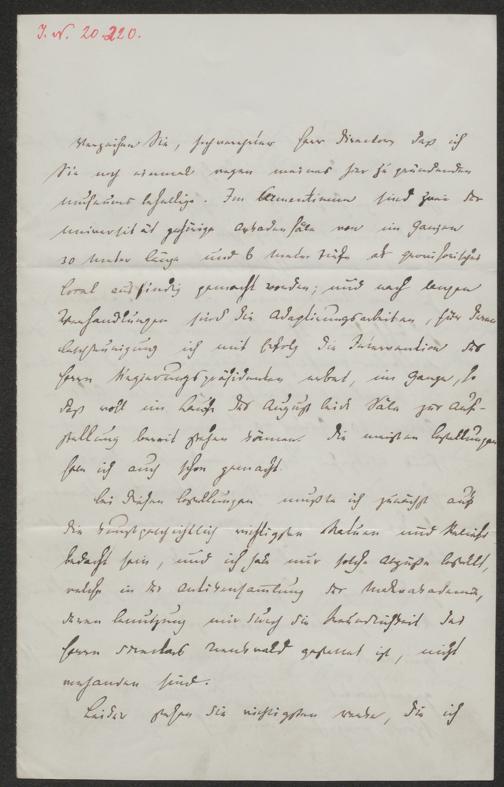 J. N. 20.220.
Verzeihen Sie, hochverehrter Herr Director daß ich
Sie noch einmal wegen meines hier zu gründenden
Museums behellige. Im Clementinum sind zwei der
Universität gehörige Arkadensäle von im Ganzen
30 Meter Länge und 6 Meter Tiefe als provisorisches
Local ausfindig gemacht worden; und nach langen
Verhandlungen sind die Adaptierungsarbeiten, für deren
Beschleunigung ich mit Erfolg die Intervention des
Herrn Regierungspräsidenten erbat, im Gange, so
daß wohl im Laufe des August beide Säle zur Auf-
stellung bereit stehen können. Die meisten Bestellungen
habe ich auch schon gemacht.
Bei diesen Bestellungen mußte ich zunächst auf
die kunstgeschichtlich wichtigsten Statuen und Reliefs
bedacht sein, und ich habe nur solche Abgüße bestellt,
welche in der Antikensammlung der Malerakademie,
deren Benutzung mir durch die Freundlichkeit des
Herrn Directors Trenkwald gestattet ist, nicht
vorhanden sind.
Leider stehen die wichtigsten Werke, die ich